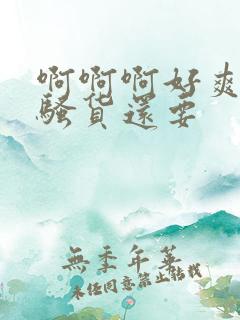 啊啊啊好爽
骚货還要
無季年華
未经同意禁止转载